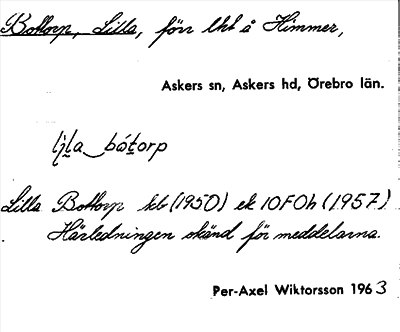 Bottorp, Lilla, förr lht å Himmer,
Askers sn, Askers hd, Örebro län.
lįl̠a bót̠orp
Lilla Bottorp kb (1950) ek 10F0h (1957)
Härledningen okänd för meddelarna.
Per-Axel Wiktorsson 1963